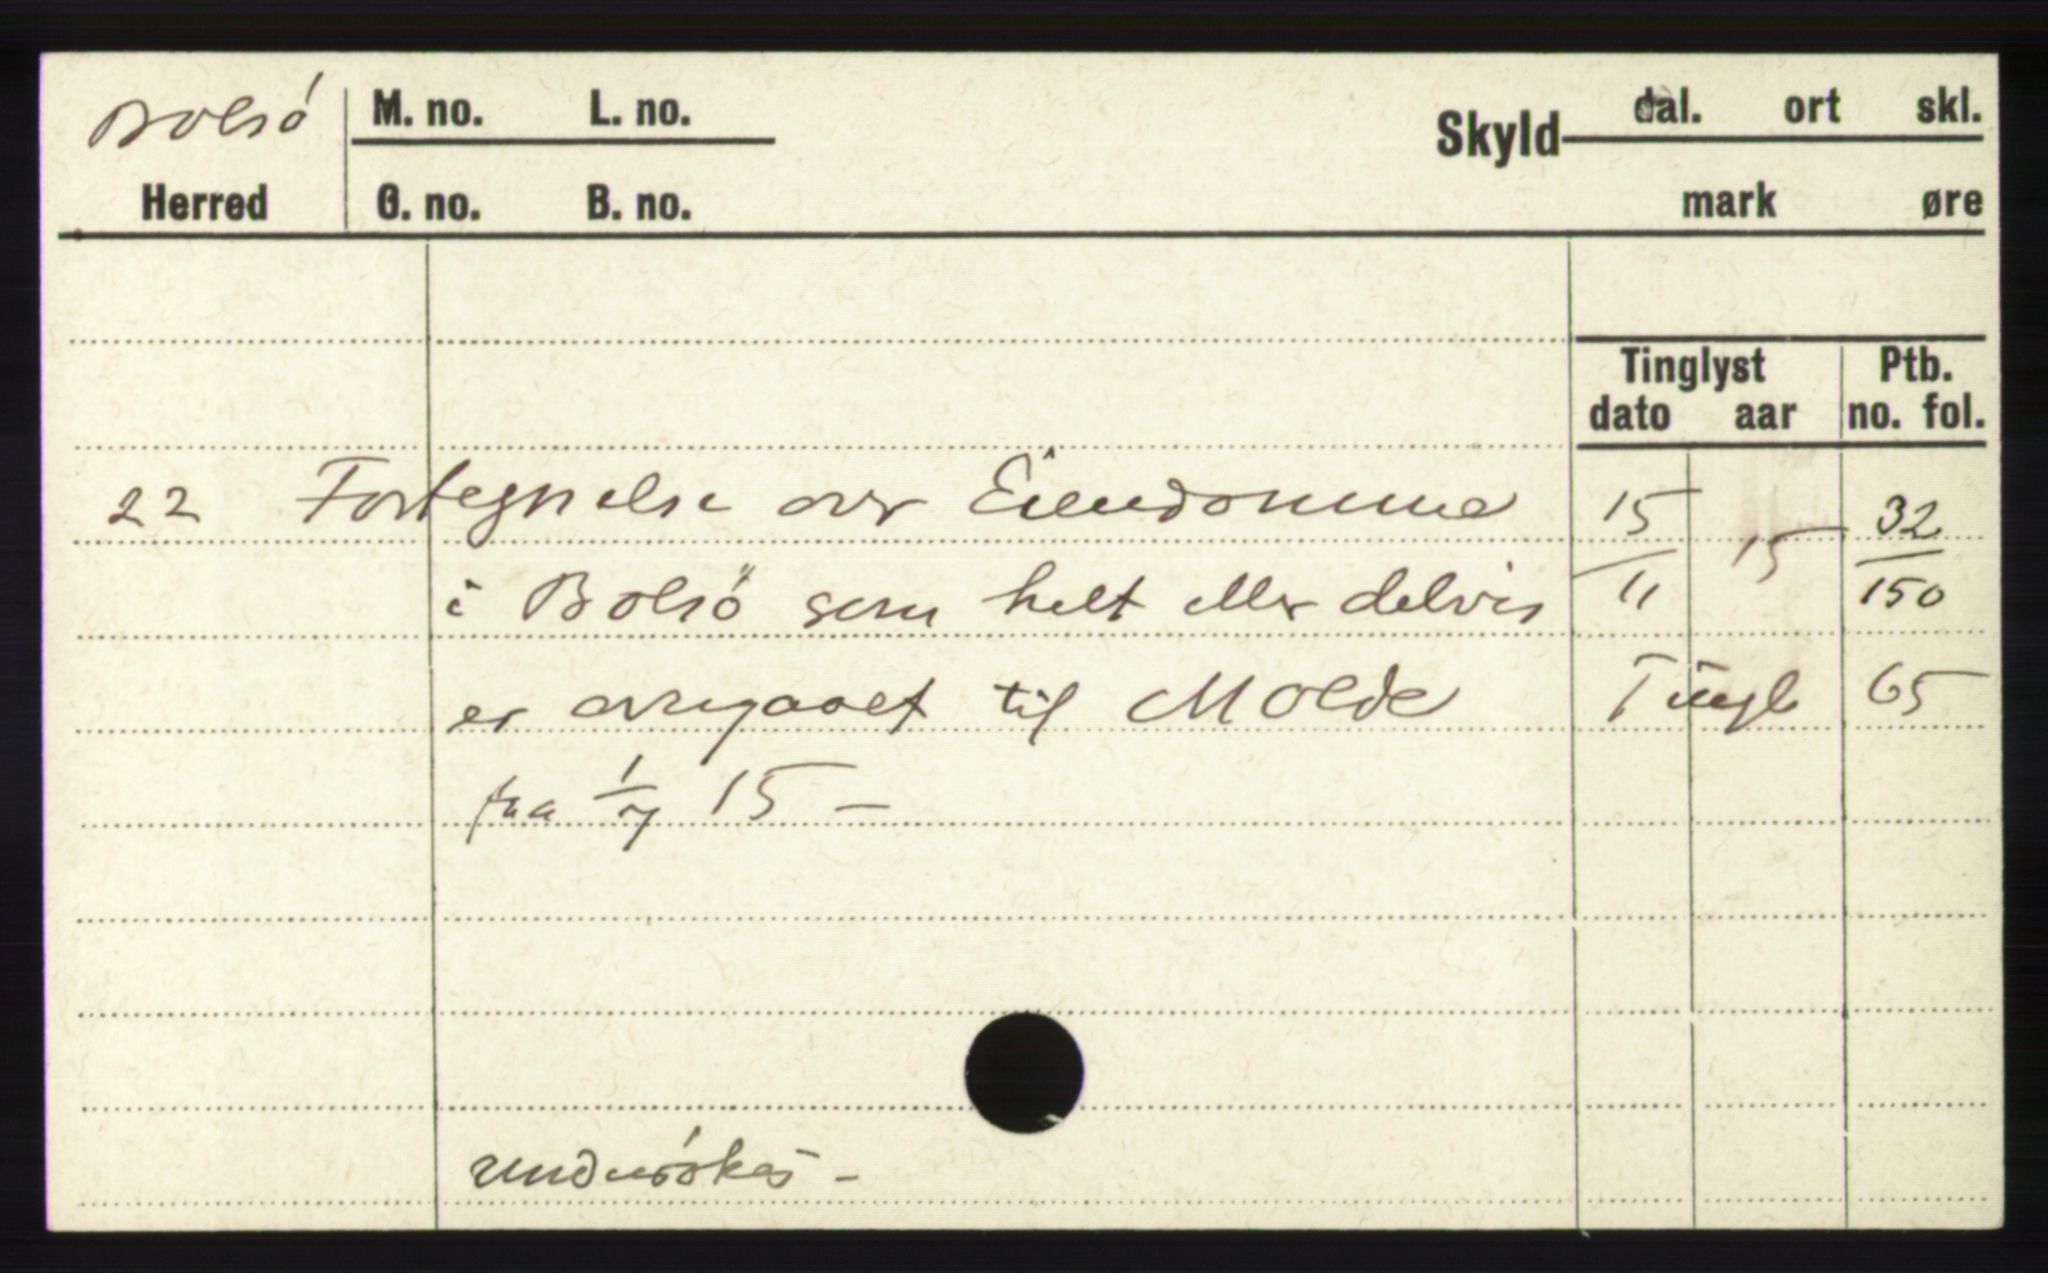 Bolsö M. no. L. no. Skyld dal. ort skl.
Herred G. no. B. no. mark øre
Tinglyst Ptb.
dato aar no. fol.
22 Fortegnelse over Eiendomme 15/11 15 32/150
i Bolsö som helt eller delvis
er overgaaet til Molde Tingl 65
fra 1/7 15 —
undersökes –